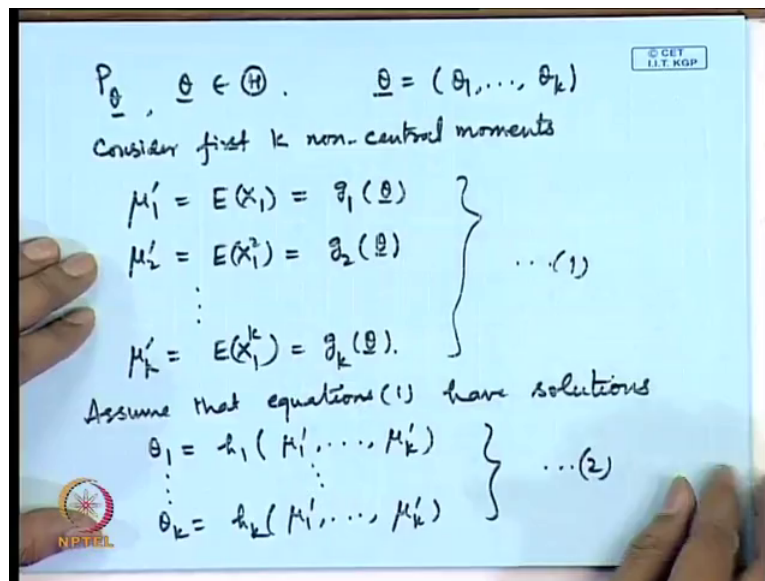 © CET
I.I.T. KGP
P_θ, θ ∈ Ⓗ. θ = (θ1, ..., θk)
Consider first k non-central moments
μ1' = E(X1) = g1(θ)
μ2' = E(X1²) = g2(θ)
⋮ ...(1)
μk' = E(X1^k) = gk(θ).
Assume that equations (1) have solutions
θ1 = h1(μ1', ..., μk')
⋮ ⋮ ...(2)
θk = hk(μ1', ..., μk')
NPTEL